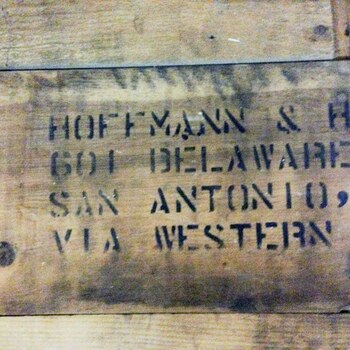 HOFFMANN & H
601 DELAWARE
SAN ANTONIO,
VIA WESTERN